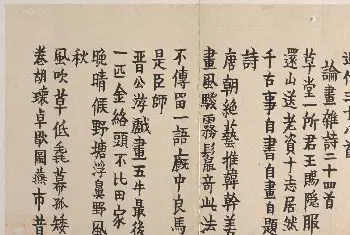 三十八首
論畫雜詩二十四首
草堂一所君王賜隱服
還山送老資十志居然
千古事自書自畫自題
詩
唐朝絕藝推韓幹善
畫風騣霧鬣奇此法
不傳留一語廄中良馬
是臣師
晉公游戲畫五牛最後
一匹金絡頭不比田家
晚晴候野塘浮鼻野風
秋
風吹草低毳幕孤矮
卷胡瓌卓歇圖燕市昔